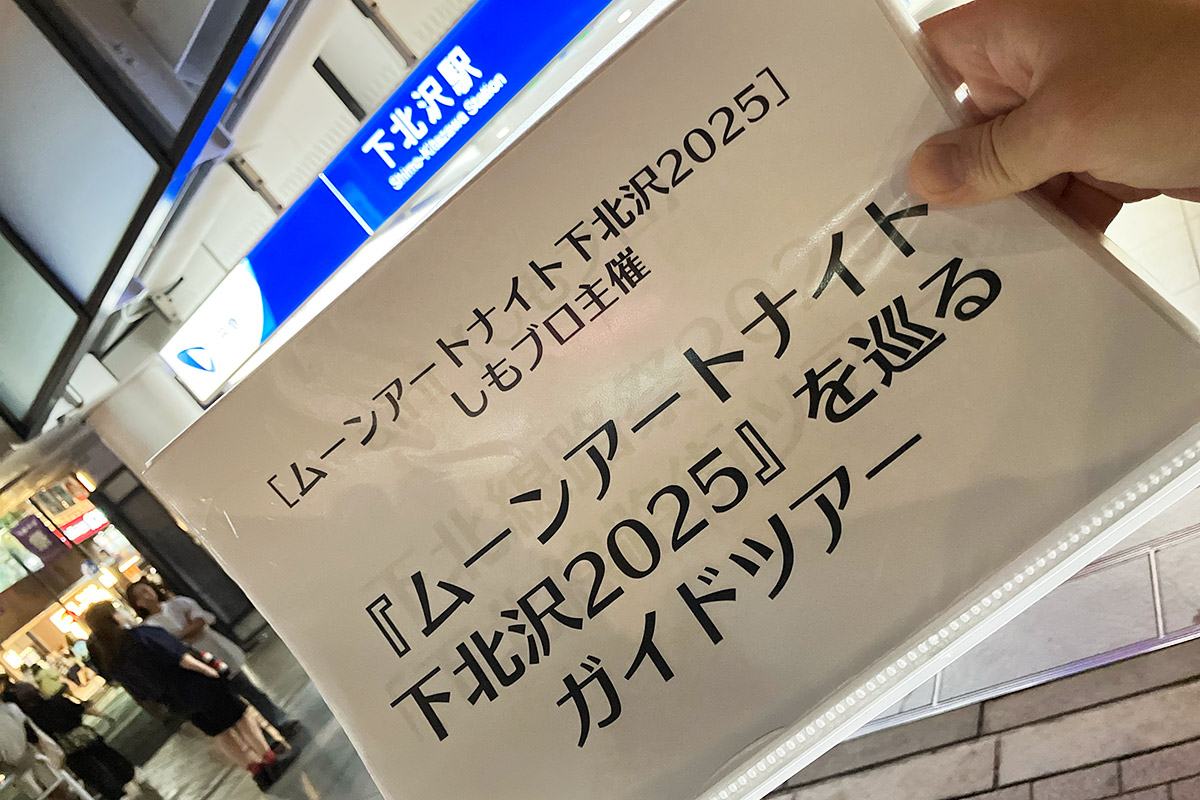 下北沢駅
Shimo-Kitazawa Station
[ムーンアートナイト下北沢2025]
しもブロ主催
『ムーンアートナイト
下北沢2025』を巡る
ガイドツアー